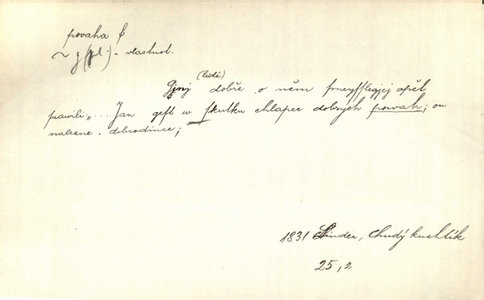 povaha f
~ y (pl.) = vlastnost.
(lidé)
Ginj dobře o něm smeysslegjcj opět
prawili: „... Jan gest w skutku chlapec dobrých powah; on
nalezne dobrodince;
1831 Šinder, Chudý kuchtík
25,2